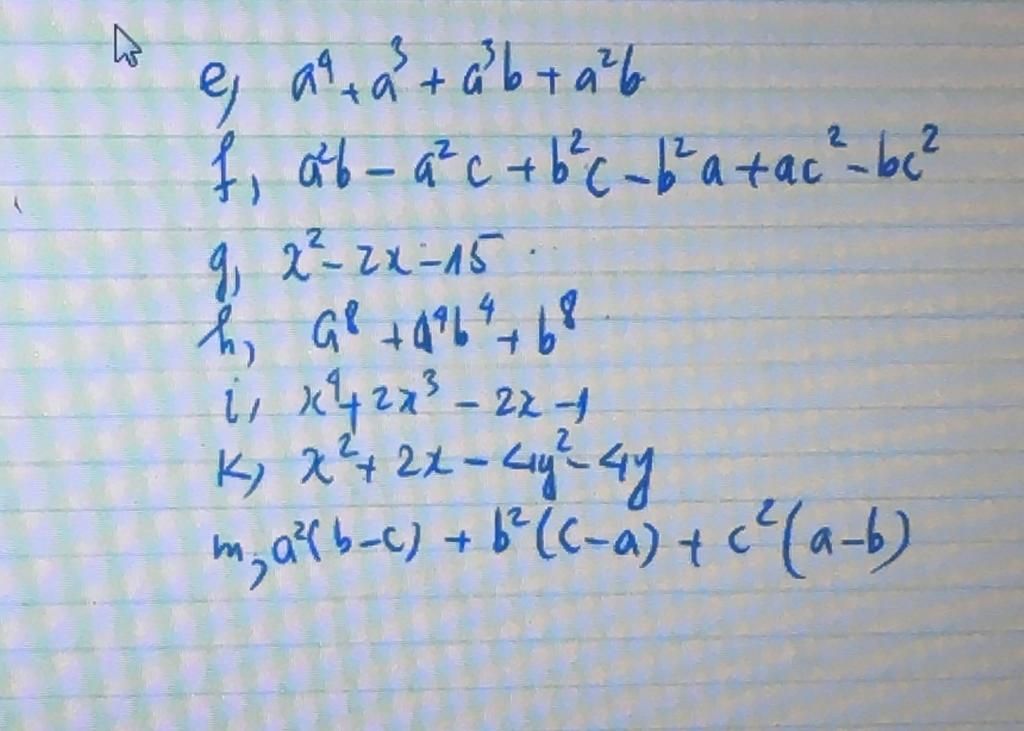 e, a⁴ + a³ + a³b + a²b
f, a²b - a²c + b²c - b²a + ac² - bc²
g, x² - 2x - 15
h, a⁸ + a⁴b⁴ + b⁸
i, x⁴ + 2x³ - 2x - 1
k, x² + 2x - 4y² - 4y
m, a²(b-c) + b²(c-a) + c²(a-b)